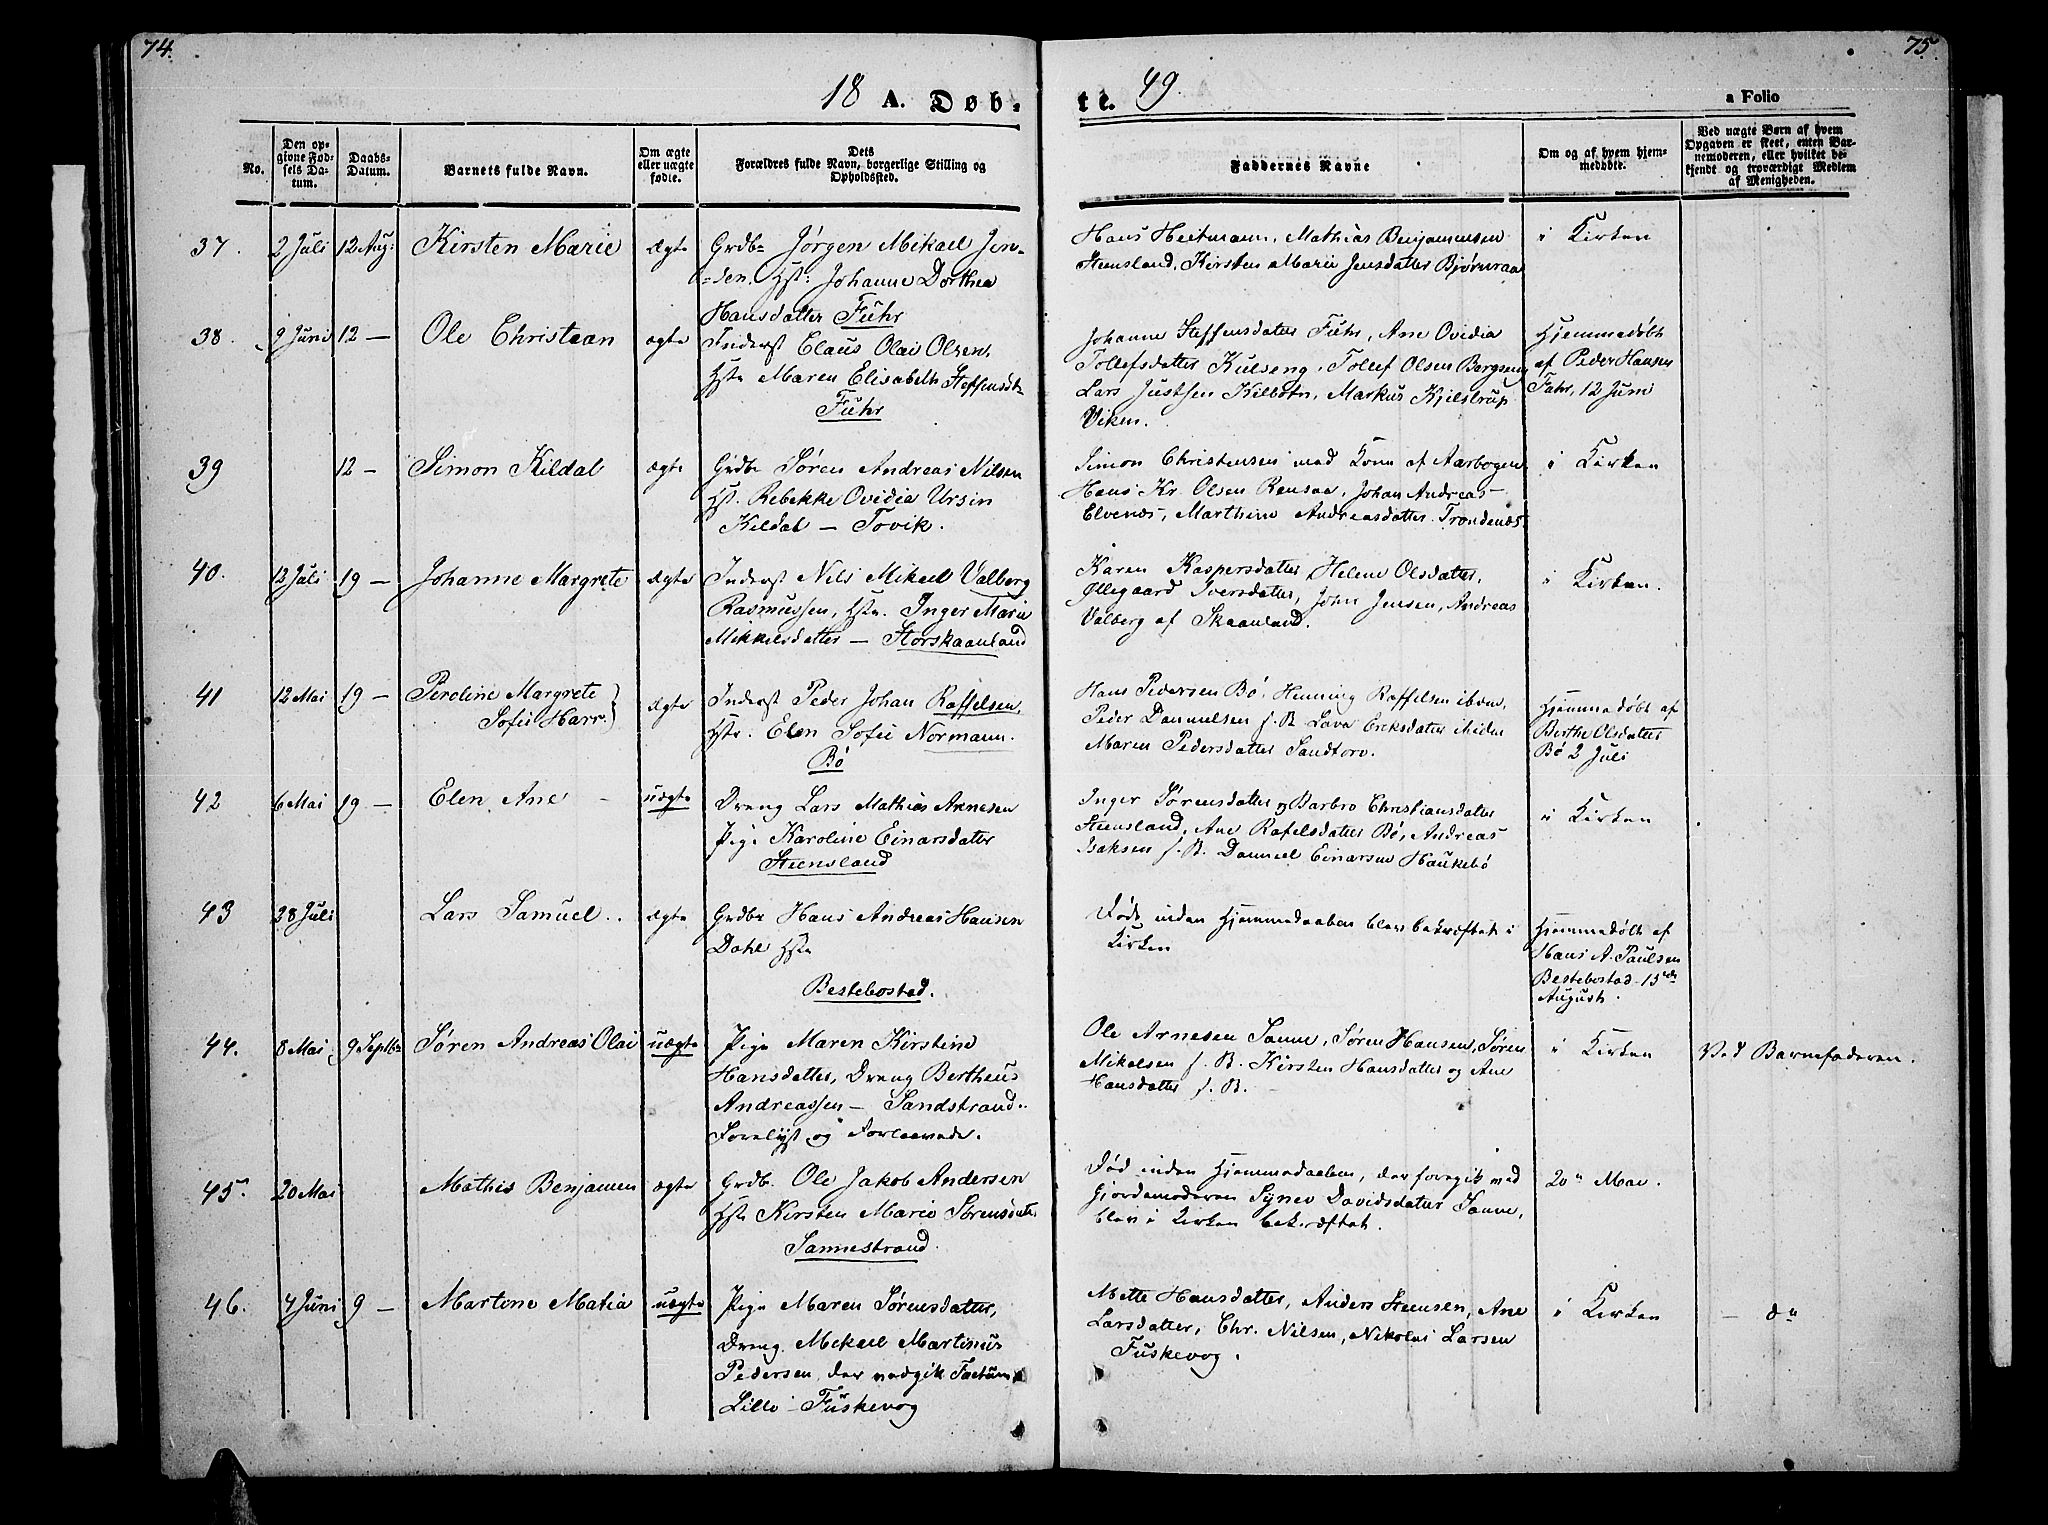 74.
75.
18 A. Døb-
te. 49.
a Folio
No.
Den op-
givne Fød-
sels Da-
tum.
Daabs-
Datum.
Barnets fulde Navn.
Om ægte
eller uægte
fødte.
Dets
Forældres fulde Navn, borgerlige Stilling og
Opholdssted.
Faddernes Navne
Om og af hvem hjem-
medøbt.
Ved uægte Børn af hvem
Opgaven er skeet, enten Bar-
nemoderen, eller hvilket be-
kjendt og troværdigt Medlem
af Menigheden.
37. 2 Juli 12 Aug: Kirsten Marie ægte Grdbr Jørgen Mikael Jen-
sen, Hst: Johanne Dorthea
Hansdatter Fuhr
Hans Heitmann, Mathias Benjaminsen
Steensland, Kirsten Marie Jensdatter Bjørnraa
i Kirken
38. 9 Juni 12 — Ole Christian ægte Inderst Elaus Olai Olsen,
Hstr Maren Elisabeth Steffensdtr
Fuhr
Johanne Steffensdatter Fuhr, Ane Ovidia
Tollefsdatter Kulseng, Tollef Olsen Bergseng
Lars Justsen Kilbotn, Markus Kjilstrup
Viken.
Hjemmedøbt
af Peder Hansen
Fuhr, 12 Juni
39 12 — Simon Kildal ægte Grdbr Søren Andreas Nilsen
Hst. Rebekke Ovidia Ursin
Kildal — Tovik.
Simon Christensen med Kone af Aarbogen
Hans Kr. Olsen Rensaa, Johan Andreas
Elvenes, Marthine Andreasdatter Trondenæs
i Kirken
40. 12 Juli 19 — Johanne Margrete ægte Inderst Nils Mikael Valberg
Rasmussen, Hstr. Inger Marie
Mikkelsdatter — Storskaanland
Karen Kaspersdatter, Helene Olsdatter,
Øllegaard Iversdatter, John Jensen, Andreas
Valberg af Skaanland.
i Kirken.
41 12 Mai 19 — Peroline Margrete
Sofie Harr. ægte Inderst Peder Johan Raffelsen,
Hstr. Elen Sofie Normann.
Bø
Hans Pedersen Bø, Henning Raffelsen ibdm,
Peder Danielsen s. St. Lava Eriksdatter ibiden
Maren Pedersdatter Sandtorv.
Hjemmedøbt af
Berthe Olsdatter
Bø 2 Juli
42 6 Mai 19 — Elen Ane uægte Dreng Lars Mathias Arnesen
Pige Karoline Einarsdatter
Steensland
Inger Sørensdatter og Barbro Christiansdatter
Steensland, Ane Rafelsdatter Bø, Andreas
Isaksen s. St. Daniel Einarsen Haukebø
i Kirken
43 28 Juli Lars Samuel.. ægte Grdbr Hans Andreas Hansen
Dahl Hstr
Bestebostad.
Døde inden Hjemmedaaben blev bekræftet i
Kirken
Hjemmedøbt af
Hans A. Paulsen
Bestebostad 15de
August.
44. 8 Mai 9 Septbr Søren Andreas Olai uægte Pige Maren Kirstine
Hansdatter, Dreng Bertheus
Andreassen — Sandstrand..
Forelyst og Forlovede.
Ole Arnesen Sanne, Søren Hansen, Søren
Mikalsen s. St. Kirsten Hansdatter og Ane
Hansdatter s. St.
i Kirken
Ved Barnefaderen.
45. 20 Mai Mathis Benjamin ægte Grdb. Ole Jakob Andersen
Hstr Kirsten Marie Sørensdatter
Sannestrand.
Død inden Hjemmedaaben, der foregik med
Gjordemoderen Synev Davidsdatter Sanne,
blev i Kirken bekræftet.
20de Mai.
46. 4 Juni 9 — Martine Matia uægte Pige Maren Sørensdatter,
Dreng Mikael Martinus
Pedersen, der vedgik Factum
Lille Fuskevog
Mette Hansdatter, Anders Steensen, Ane
Larsdatter, Chr. Nilsen, Nikolai Larsen
Fuskevog.
i Kirken
— do